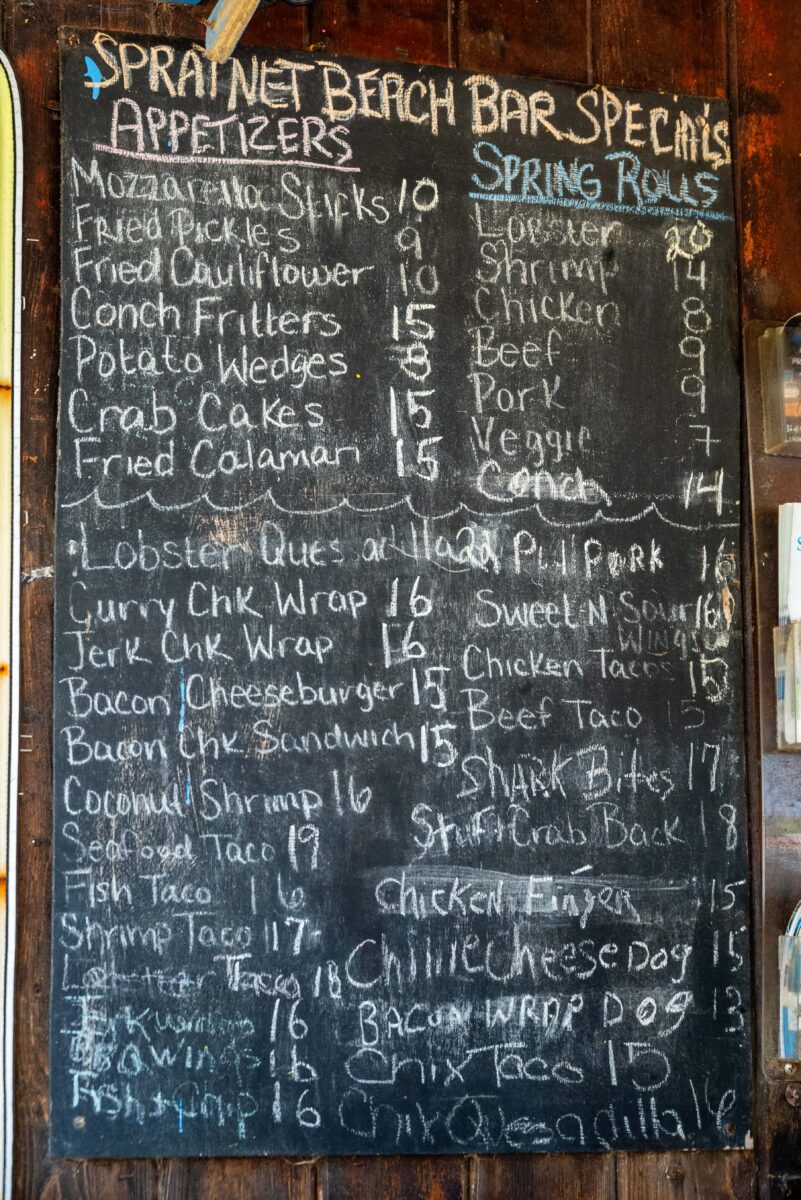 SPRATNET BEACH BAR SPECIALS
APPETIZERS
Mozzarella Sticks 10
Fried Pickles 9
Fried Cauliflower 10
Conch Fritters 15
Potato Wedges 8
Crab Cakes 15
Fried Calamari 15
SPRING ROLLS
Lobster 20
Shrimp 14
Chicken 8
Beef 9
Pork 9
Veggie 7
Conch 14
Lobster Quesadilla 22
Curry Chk Wrap 16
Jerk Chk Wrap 16
Bacon Cheeseburger 15
Bacon Chk Sandwich 15
Coconut Shrimp 16
Seafood Taco 19
Fish Taco 16
Shrimp Taco 17
Lobster Taco 18
Jerk Wings 16
BBQ Wings 16
Fish & Chip 16
Pull PORK 16
Sweet N Sour 16
WINGS
Chicken Tacos 15
Beef Taco 15
SHARK Bites 17
Stuff Crab Back 18
Chicken Finger 15
Chillie Cheese Dog 15
BACON WRAP DOG 13
Chix Taco 15
Chix Quesadilla 16